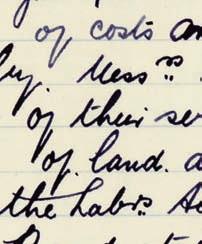 of costs an
by. Messrs.
of their ser
of land. a
the Labrs. Ac